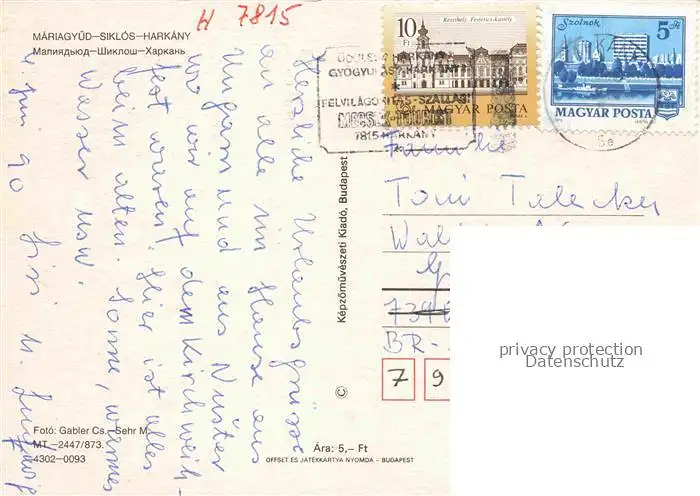 H 7815
MÁRIAGYŰD—SIKLÓS—HARKÁNY
Малиядьюд—Шиклош—Харкань
Herzliche Urlaubsgrüsse
an alle im Hause aus
Ungarn und aus Nüster
wo wir auf dem Kirchweih-
fest waren. Hier ist alles
beim alten. Sonne, warmes
Wasser usw.
Fotó: Gabler Cs.—Sehr M.
MT.—2447/873.
4302-0093
Képzőművészeti Kiadó, Budapest
©
Ára: 5,– Ft
OFFSET ÉS JÁTÉKKÁRTYA NYOMDA – BUDAPEST
10 Ft
Keszthely, Festetics-kastély
MAGYAR POSTA
Szolnok
5 Ft
MAGYAR POSTA
GYÓGYULÁS HARKÁNY
FELVILÁGOSÍTÁS-SZÁLLÁS:
MECSEK TOURIST
7815 HARKÁNY
Familie
Toni
BR-
7 9
privacy protection
Datenschutz